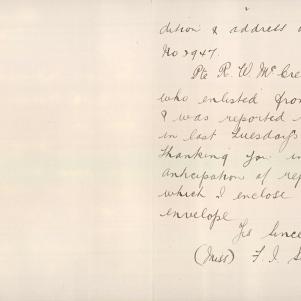 dition & address
No 3947.
Pte R. W. McCre
who enlisted from
& was reported
in last Tuesday's
Thanking you in
anticipation of rep
which I enclose
envelope
Yrs Since
(Miss) F. I. S